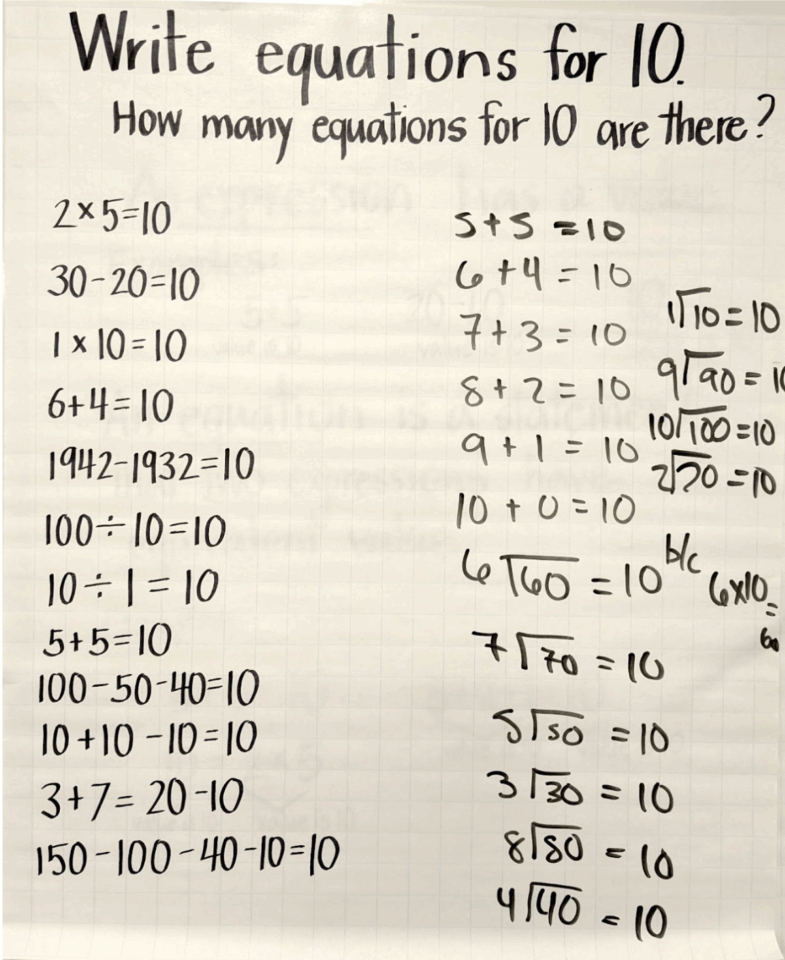 Write equations for 10.
How many equations for 10 are there?
2×5=10
30-20=10
1×10=10
6+4=10
1942-1932=10
100÷10=10
10÷1=10
5+5=10
100-50-40=10
10+10-10=10
3+7=20-10
150-100-40-10=10
5+5=10
6+4=10
7+3=10
8+2=10
9+1=10
10+0=10
6⟌60=10 b/c 6x10
=
60
7⟌70=10
5⟌50=10
3⟌30=10
8⟌80=10
4⟌40=10
1⟌10=10
9⟌90=10
10⟌100=10
2⟌20=10